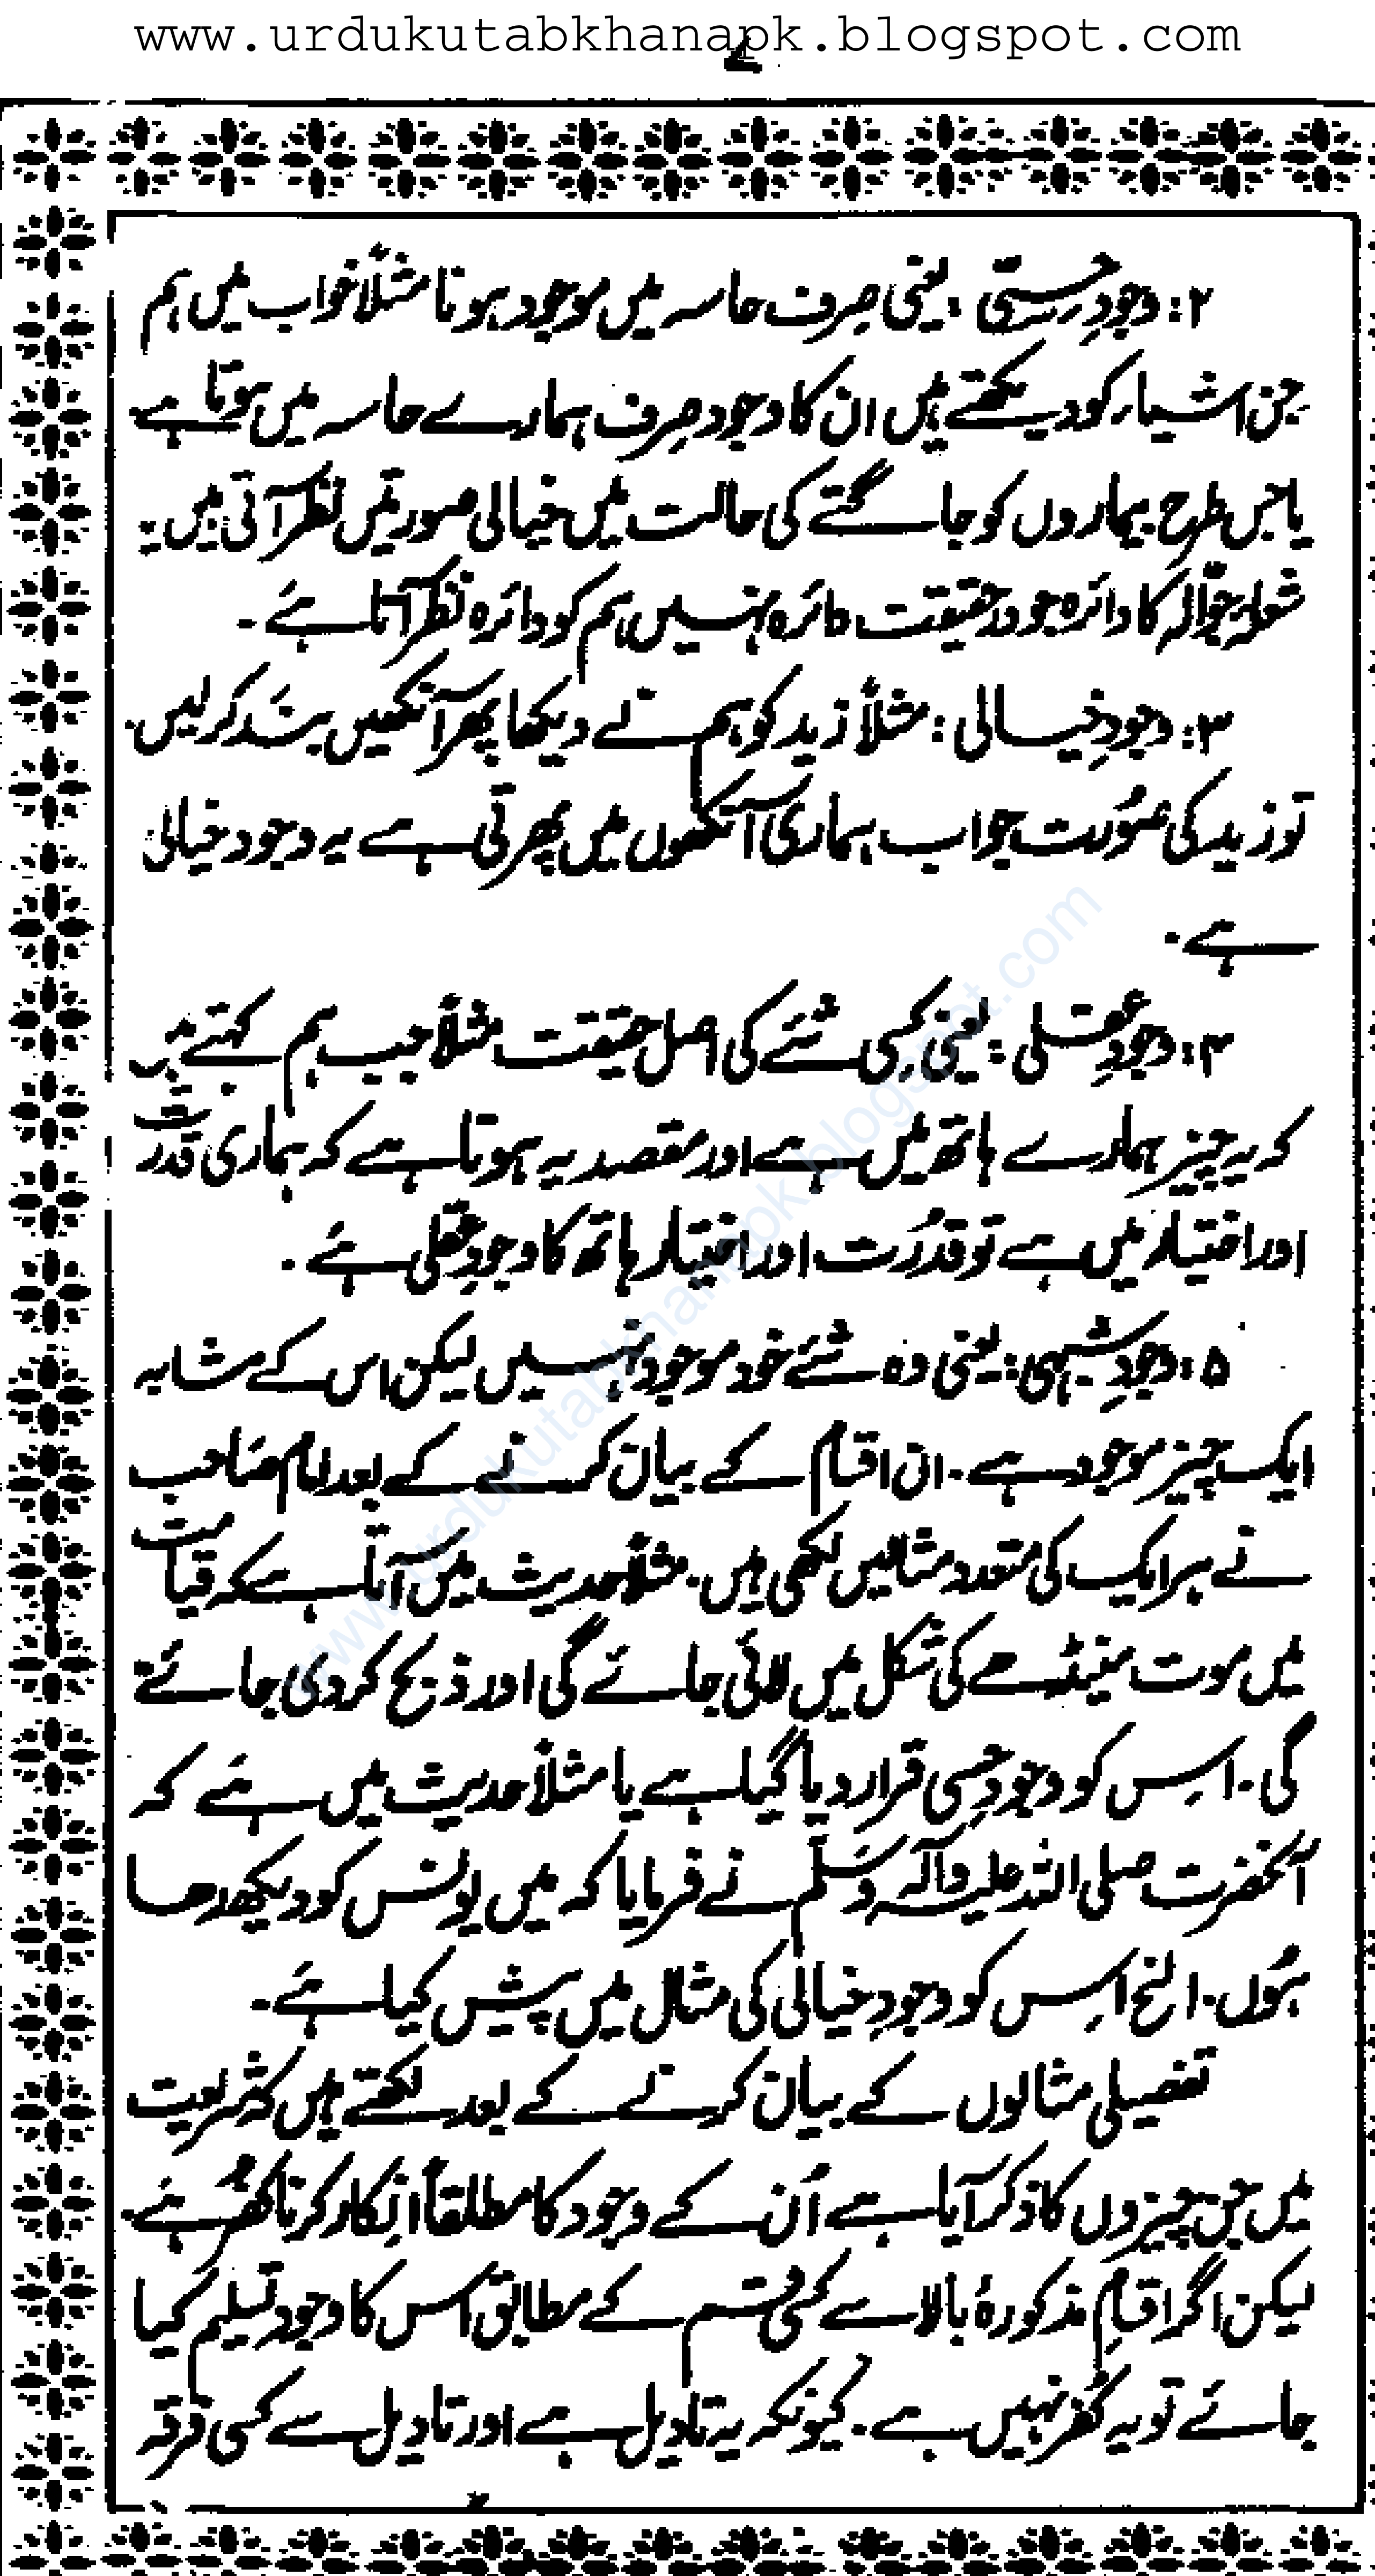 www.urdukutabkhanapk.blogspot.com
۷
۲: وجودِ حسّی: یعنی صِرف حاسہ میں موجود ہونا مثلاً خواب میں ہم
جن اشیاء کو دیکھتے ہیں ان کا وجود صِرف ہمارے حاسہ میں ہوتا ہے۔
یا جس طرح بیماروں کو جاگتے کی حالت میں خیالی صورتیں نظر آتی ہیں یہ
شعلہ جوّالہ کا دائرہ جو درحقیقت دائرہ نہیں ہم کو دائرہ نظر آتا ہے۔
۳: وجودِ خیالی: مثلاً زید کو ہم نے دیکھا پھر آنکھیں بند کر لیں۔
تو زید کی صُورت جو اب ہماری آنکھوں میں پھرتی ہے یہ وجود خیالی
ہے۔
۴: وجودِ عقلی: یعنی کسی شئے کی اصل حقیقت مثلاً جب ہم کہتے ہیں
کہ یہ چیز ہمارے ہاتھ میں ہے اور مقصد یہ ہوتا ہے کہ ہماری قدرت
اور اختیار میں ہے تو قدُرت اور اختیار ہاتھ کا وجودِ عقلی ہے۔
۵: وجودِ شبہی: یعنی وہ شئے خود موجود نہیں لیکن اس کے مشابہ
ایک چیز موجود ہے۔ ان اقسام کے بیان کرنے کے بعد امام صَاحب
نے ہر ایک کی متعدد مثالیں لکھی ہیں۔ مثلاً حدیث میں آتا ہے کہ قیامت
میں موت مینڈھے کی شکل میں لائی جائے گی اور ذبح کر دی جائے
گی۔ اسِ کو وجودِ حسی قرار دیا گیا ہے یا مثلاً حدیث میں ہے کہ
آنحضرت صلی اللہ علیہ وآلہ وَسلّم نے فرمایا کہ میں یونس کو دیکھ رہا
ہوُں۔ الخ اسِ کو وجودِ خیالی کی مثال میں پیش کیا ہے۔
تفصیلی مثالوں کے بیان کرنے کے بعد لکھتے ہیں کہ شریعت
میں جن چیزوں کا ذکر آیا ہے اُن کے وجود کا مطلقاً انکار کرنا کُفر ہے۔
لیکن اگر اقسامِ مذکورۂ بالا سے کسی قسم کے مطابق اس کا وجود تسلیم کیا
جائے تو یہ کُفر نہیں ہے۔ کیونکہ یہ تاویل ہے اور تاویل سے کسی فرقہ
www.urdukutabkhanapk.blogspot.com